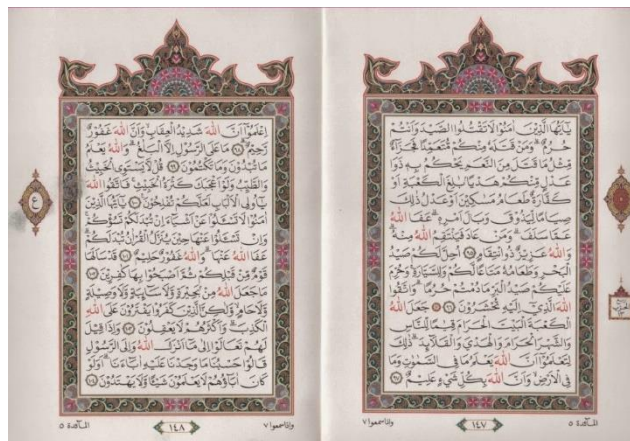 يَا أَيُّهَا الَّذِينَ آمَنُوا لَا تَقْتُلُوا الصَّيْدَ وَأَنْتُمْ
حُرُمٌ وَمَنْ قَتَلَهُ مِنْكُمْ مُتَعَمِّدًا فَجَزَاءٌ
مِثْلُ مَا قَتَلَ مِنَ النَّعَمِ يَحْكُمُ بِهِ ذَوَا
عَدْلٍ مِنْكُمْ هَدْيًا بَالِغَ الْكَعْبَةِ أَوْ
كَفَّارَةٌ طَعَامُ مَسَاكِينَ أَوْ عَدْلُ ذَلِكَ
صِيَامًا لِيَذُوقَ وَبَالَ أَمْرِهِ عَفَا اللَّهُ
عَمَّا سَلَفَ وَمَنْ عَادَ فَيَنْتَقِمُ اللَّهُ مِنْهُ
وَاللَّهُ عَزِيزٌ ذُو انْتِقَامٍ ﴿٩٥﴾ أُحِلَّ لَكُمْ صَيْدُ
الْبَحْرِ وَطَعَامُهُ مَتَاعًا لَكُمْ وَلِلسَّيَّارَةِ وَحُرِّمَ
عَلَيْكُمْ صَيْدُ الْبَرِّ مَا دُمْتُمْ حُرُمًا وَاتَّقُوا
اللَّهَ الَّذِي إِلَيْهِ تُحْشَرُونَ ﴿٩٦﴾ جَعَلَ اللَّهُ
الْكَعْبَةَ الْبَيْتَ الْحَرَامَ قِيَامًا لِلنَّاسِ
وَالشَّهْرَ الْحَرَامَ وَالْهَدْيَ وَالْقَلَائِدَ ذَلِكَ
لِتَعْلَمُوا أَنَّ اللَّهَ يَعْلَمُ مَا فِي السَّمَاوَاتِ وَمَا
فِي الْأَرْضِ وَأَنَّ اللَّهَ بِكُلِّ شَيْءٍ عَلِيمٌ ﴿٩٧﴾
المائدة ٥
١٤٧
وإذا سمعوا ٧
اعْلَمُوا أَنَّ اللَّهَ شَدِيدُ الْعِقَابِ وَأَنَّ اللَّهَ غَفُورٌ
رَحِيمٌ ﴿٩٨﴾ مَا عَلَى الرَّسُولِ إِلَّا الْبَلَاغُ وَاللَّهُ يَعْلَمُ
مَا تُبْدُونَ وَمَا تَكْتُمُونَ ﴿٩٩﴾ قُلْ لَا يَسْتَوِي الْخَبِيثُ
وَالطَّيِّبُ وَلَوْ أَعْجَبَكَ كَثْرَةُ الْخَبِيثِ فَاتَّقُوا اللَّهَ
يَا أُولِي الْأَلْبَابِ لَعَلَّكُمْ تُفْلِحُونَ ﴿١٠٠﴾ يَا أَيُّهَا الَّذِينَ
آمَنُوا لَا تَسْأَلُوا عَنْ أَشْيَاءَ إِنْ تُبْدَ لَكُمْ تَسُؤْكُمْ
وَإِنْ تَسْأَلُوا عَنْهَا حِينَ يُنَزَّلُ الْقُرْآنُ تُبْدَ لَكُمْ
عَفَا اللَّهُ عَنْهَا وَاللَّهُ غَفُورٌ حَلِيمٌ ﴿١٠١﴾ قَدْ سَأَلَهَا
قَوْمٌ مِنْ قَبْلِكُمْ ثُمَّ أَصْبَحُوا بِهَا كَافِرِينَ ﴿١٠٢﴾
مَا جَعَلَ اللَّهُ مِنْ بَحِيرَةٍ وَلَا سَائِبَةٍ وَلَا وَصِيلَةٍ
وَلَا حَامٍ وَلَكِنَّ الَّذِينَ كَفَرُوا يَفْتَرُونَ عَلَى اللَّهِ
الْكَذِبَ وَأَكْثَرُهُمْ لَا يَعْقِلُونَ ﴿١٠٣﴾ وَإِذَا قِيلَ
لَهُمْ تَعَالَوْا إِلَى مَا أَنْزَلَ اللَّهُ وَإِلَى الرَّسُولِ
قَالُوا حَسْبُنَا مَا وَجَدْنَا عَلَيْهِ آبَاءَنَا أَوَلَوْ
كَانَ آبَاؤُهُمْ لَا يَعْلَمُونَ شَيْئًا وَلَا يَهْتَدُونَ ﴿١٠٤﴾
وإذا سمعوا ٧
١٤٨
المائدة ٥
ع